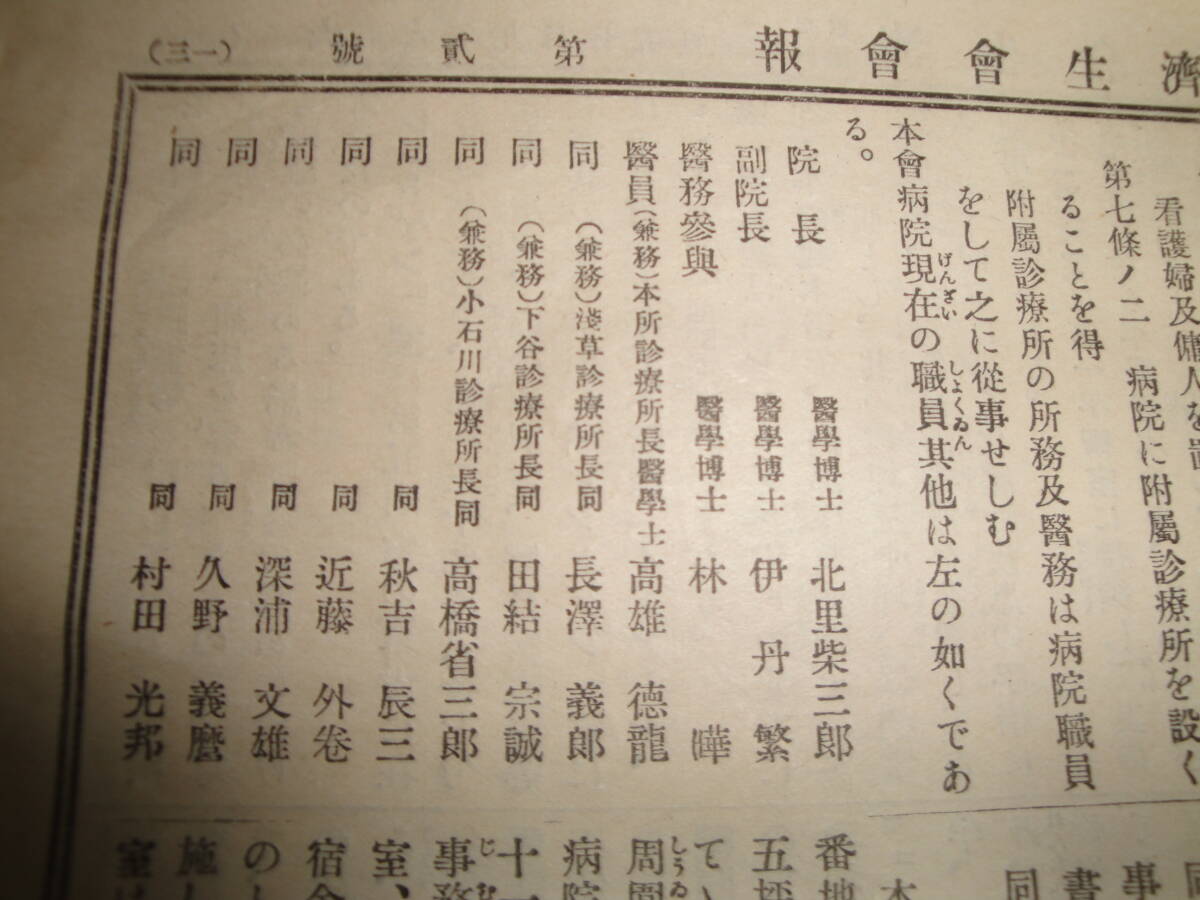 濟生會會報
第貳號
(一三)
看護婦及傭人を置
第七條ノ二　病院に附屬診療所を設く
ることを得
附屬診療所の所務及醫務は病院職員
をして之に從事せしむ
本會病院現在の職員其他は左の如くであ
る。
院長　醫學博士　北里柴三郎
副院長　醫學博士　伊丹繁
醫務參與　醫學博士　林曄
醫員(兼務)本所診療所長醫學士　高雄德龍
同　(兼務)淺草診療所長同　長澤義郎
同　(兼務)下谷診療所長同　田結宗誠
同　(兼務)小石川診療所長同　高橋省三郎
同　同　秋吉辰三
同　同　近藤外卷
同　同　深浦文雄
同　同　久野義麿
同　同　村田光邦
同
書
事
本
番地
五坪
て、
周圍
病院
十一
事務
室、
宿舍
の
施
室